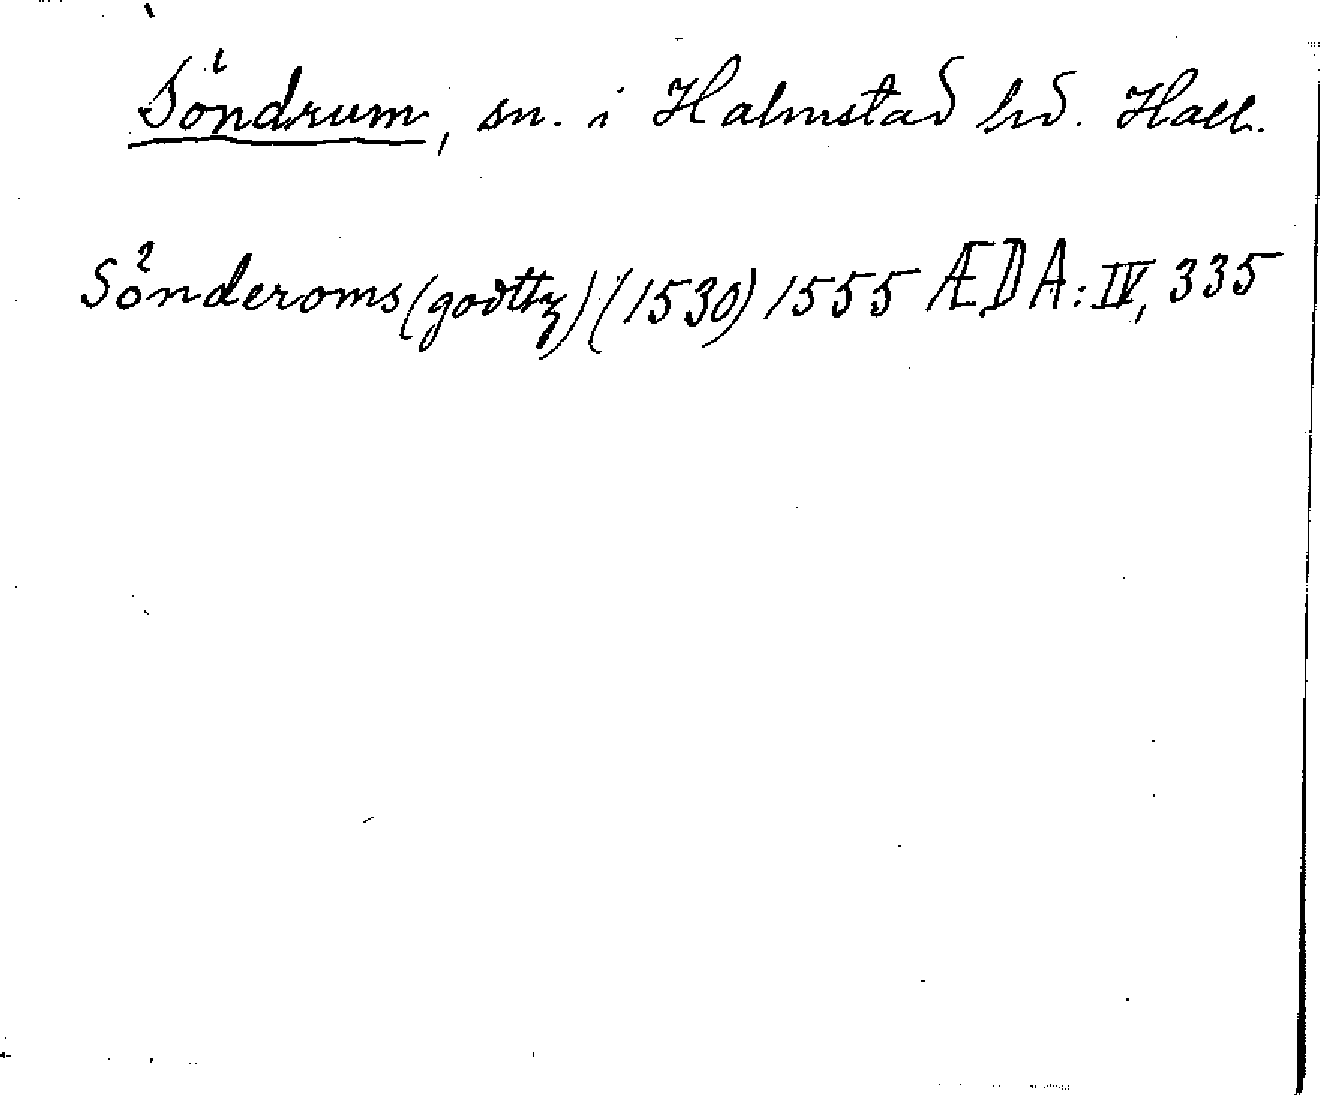 Söndrum, sn. i Halmstad hd. Hall.
Sönderoms (godttz) (1530) 1555 ÆDA: IV, 335